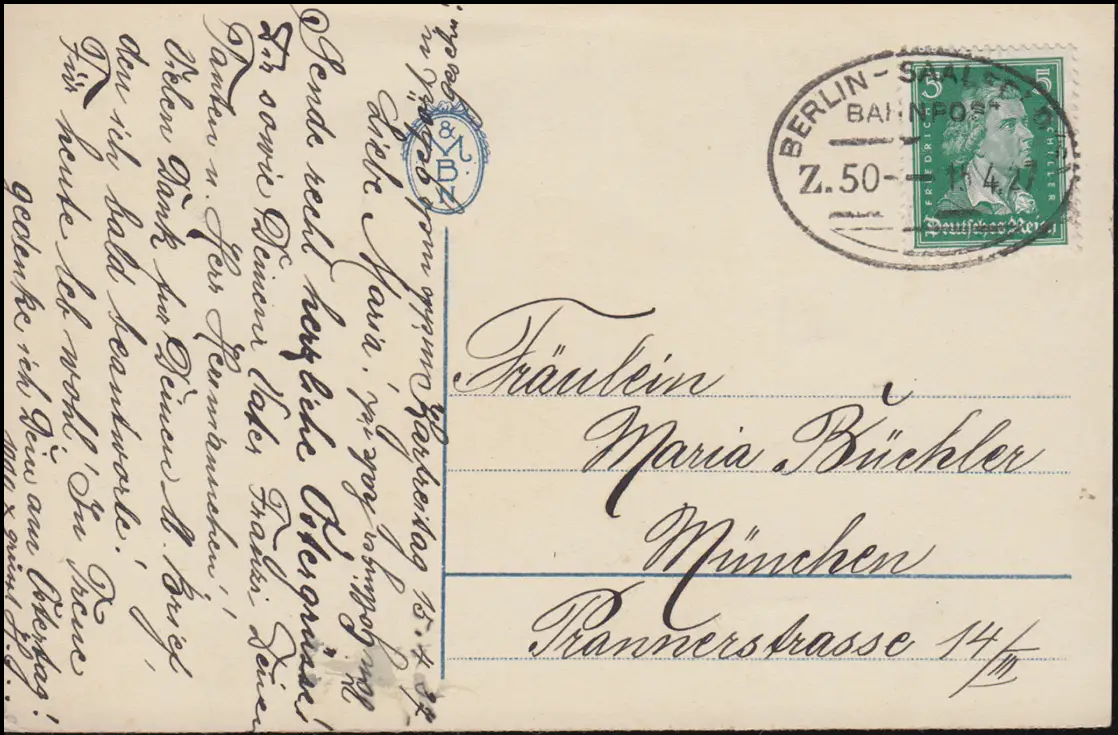 Karfreitag 15.4.27
Liebe Maria!
Sende recht herzliche Ostergrüsse!
Dir sowie Deinem Vater, Franzi, Deinen
Tanten u. Herr Hermännchen!
Vielen Dank für Deinen l. Brief
den ich bald beantworte!
Für heute leb wohl! In Treue
gedenke ich Dein am Ostertag!
grüsst
M&
B
N
BERLIN - SAALFELD
BAHNPOST
Z.50 15 4.27
5 5
FRIEDRICH SCHILLER
Deutsches Reich
Fräulein
Maria Büchler
München
Prannerstrasse 14/III